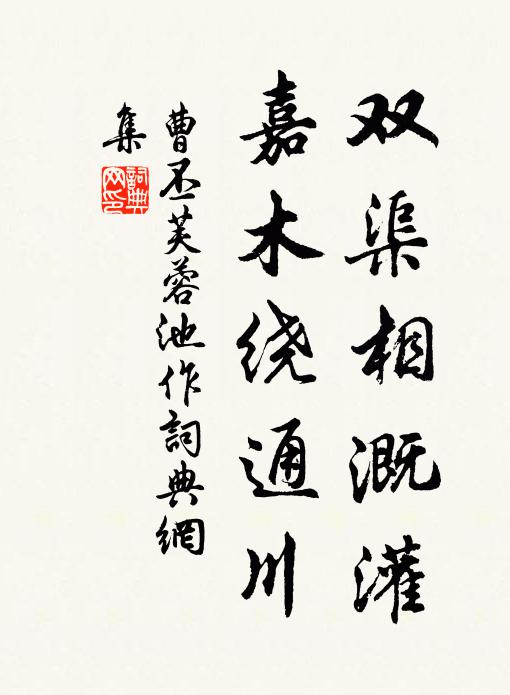 双渠相溉灌
嘉木绕通川
曹丕芙蓉池作詞典網
集
詞典
网印